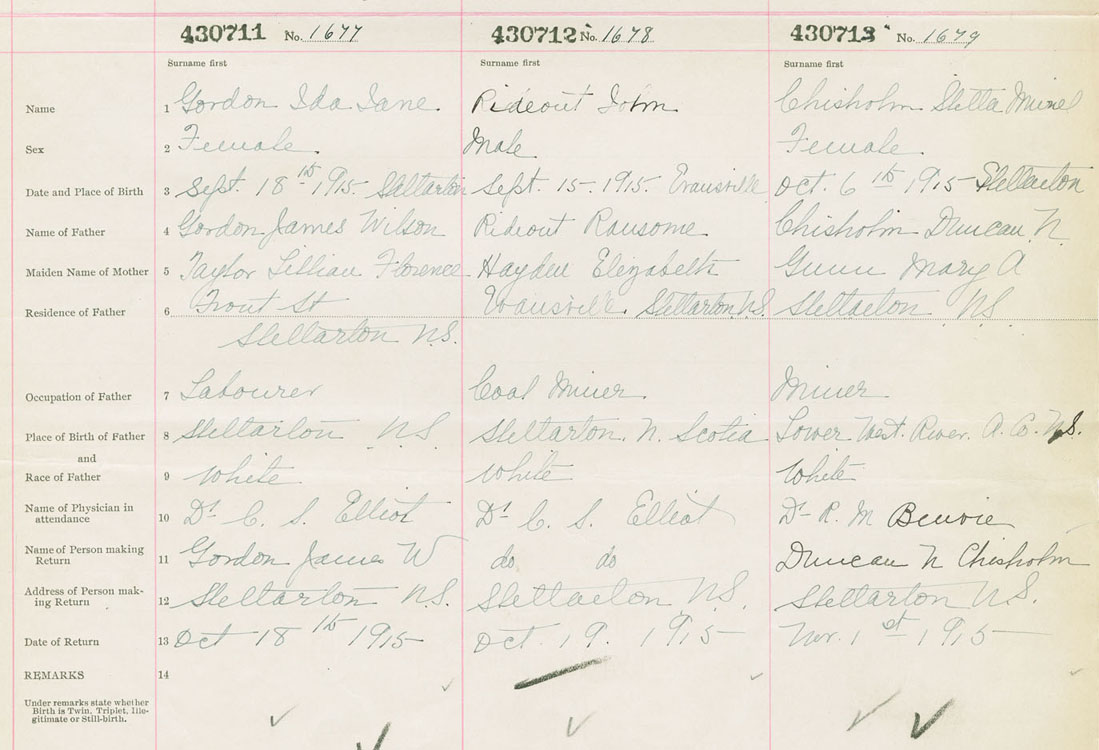 430711 No. 1677 430712 No. 1678 430713 No. 1679
Surname first Surname first Surname first
Name 1 Gordon Ida Jane Rideout John Chisholm Stella
Sex 2 Female. Male Female.
Date and Place of Birth 3 Sept. 18th 1915- Stellarton Sept. 15-1915. Evansville Oct. 6th 1915- Stellarton
Name of Father 4 Gordon James Wilson Rideout Ransome Chisholm Duncan N.
Maiden Name of Mother 5 Taylor Lillian Florence Hayden Elizabeth Gunn Mary A
Residence of Father 6 Front St Evansville. Stellarton, N.S. Stellarton N.S.
Stellarton N.S.
Occupation of Father 7 Labourer Coal Miner. Miner
Place of Birth of Father 8 Stellarton N.S. Stellarton. N. Scotia Lower West. River. A. Co. N.S.
and
Race of Father 9 White White White
Name of Physician in
attendance 10 Dr C. S. Elliot Dr C. S. Elliot Dr R. M Benvie
Name of Person making
Return 11 Gordon James W do do Duncan N Chisholm
Address of Person mak-
ing Return 12 Stellarton N.S. Stellarton N.S. Stellarton N.S.
Date of Return 13 Oct 18th 1915- Oct. 19. 1915- Nov. 1st 1915-
REMARKS 14
Under remarks state whether
Birth is Twin, Triplet, Ille-
gitimate or Still-birth.